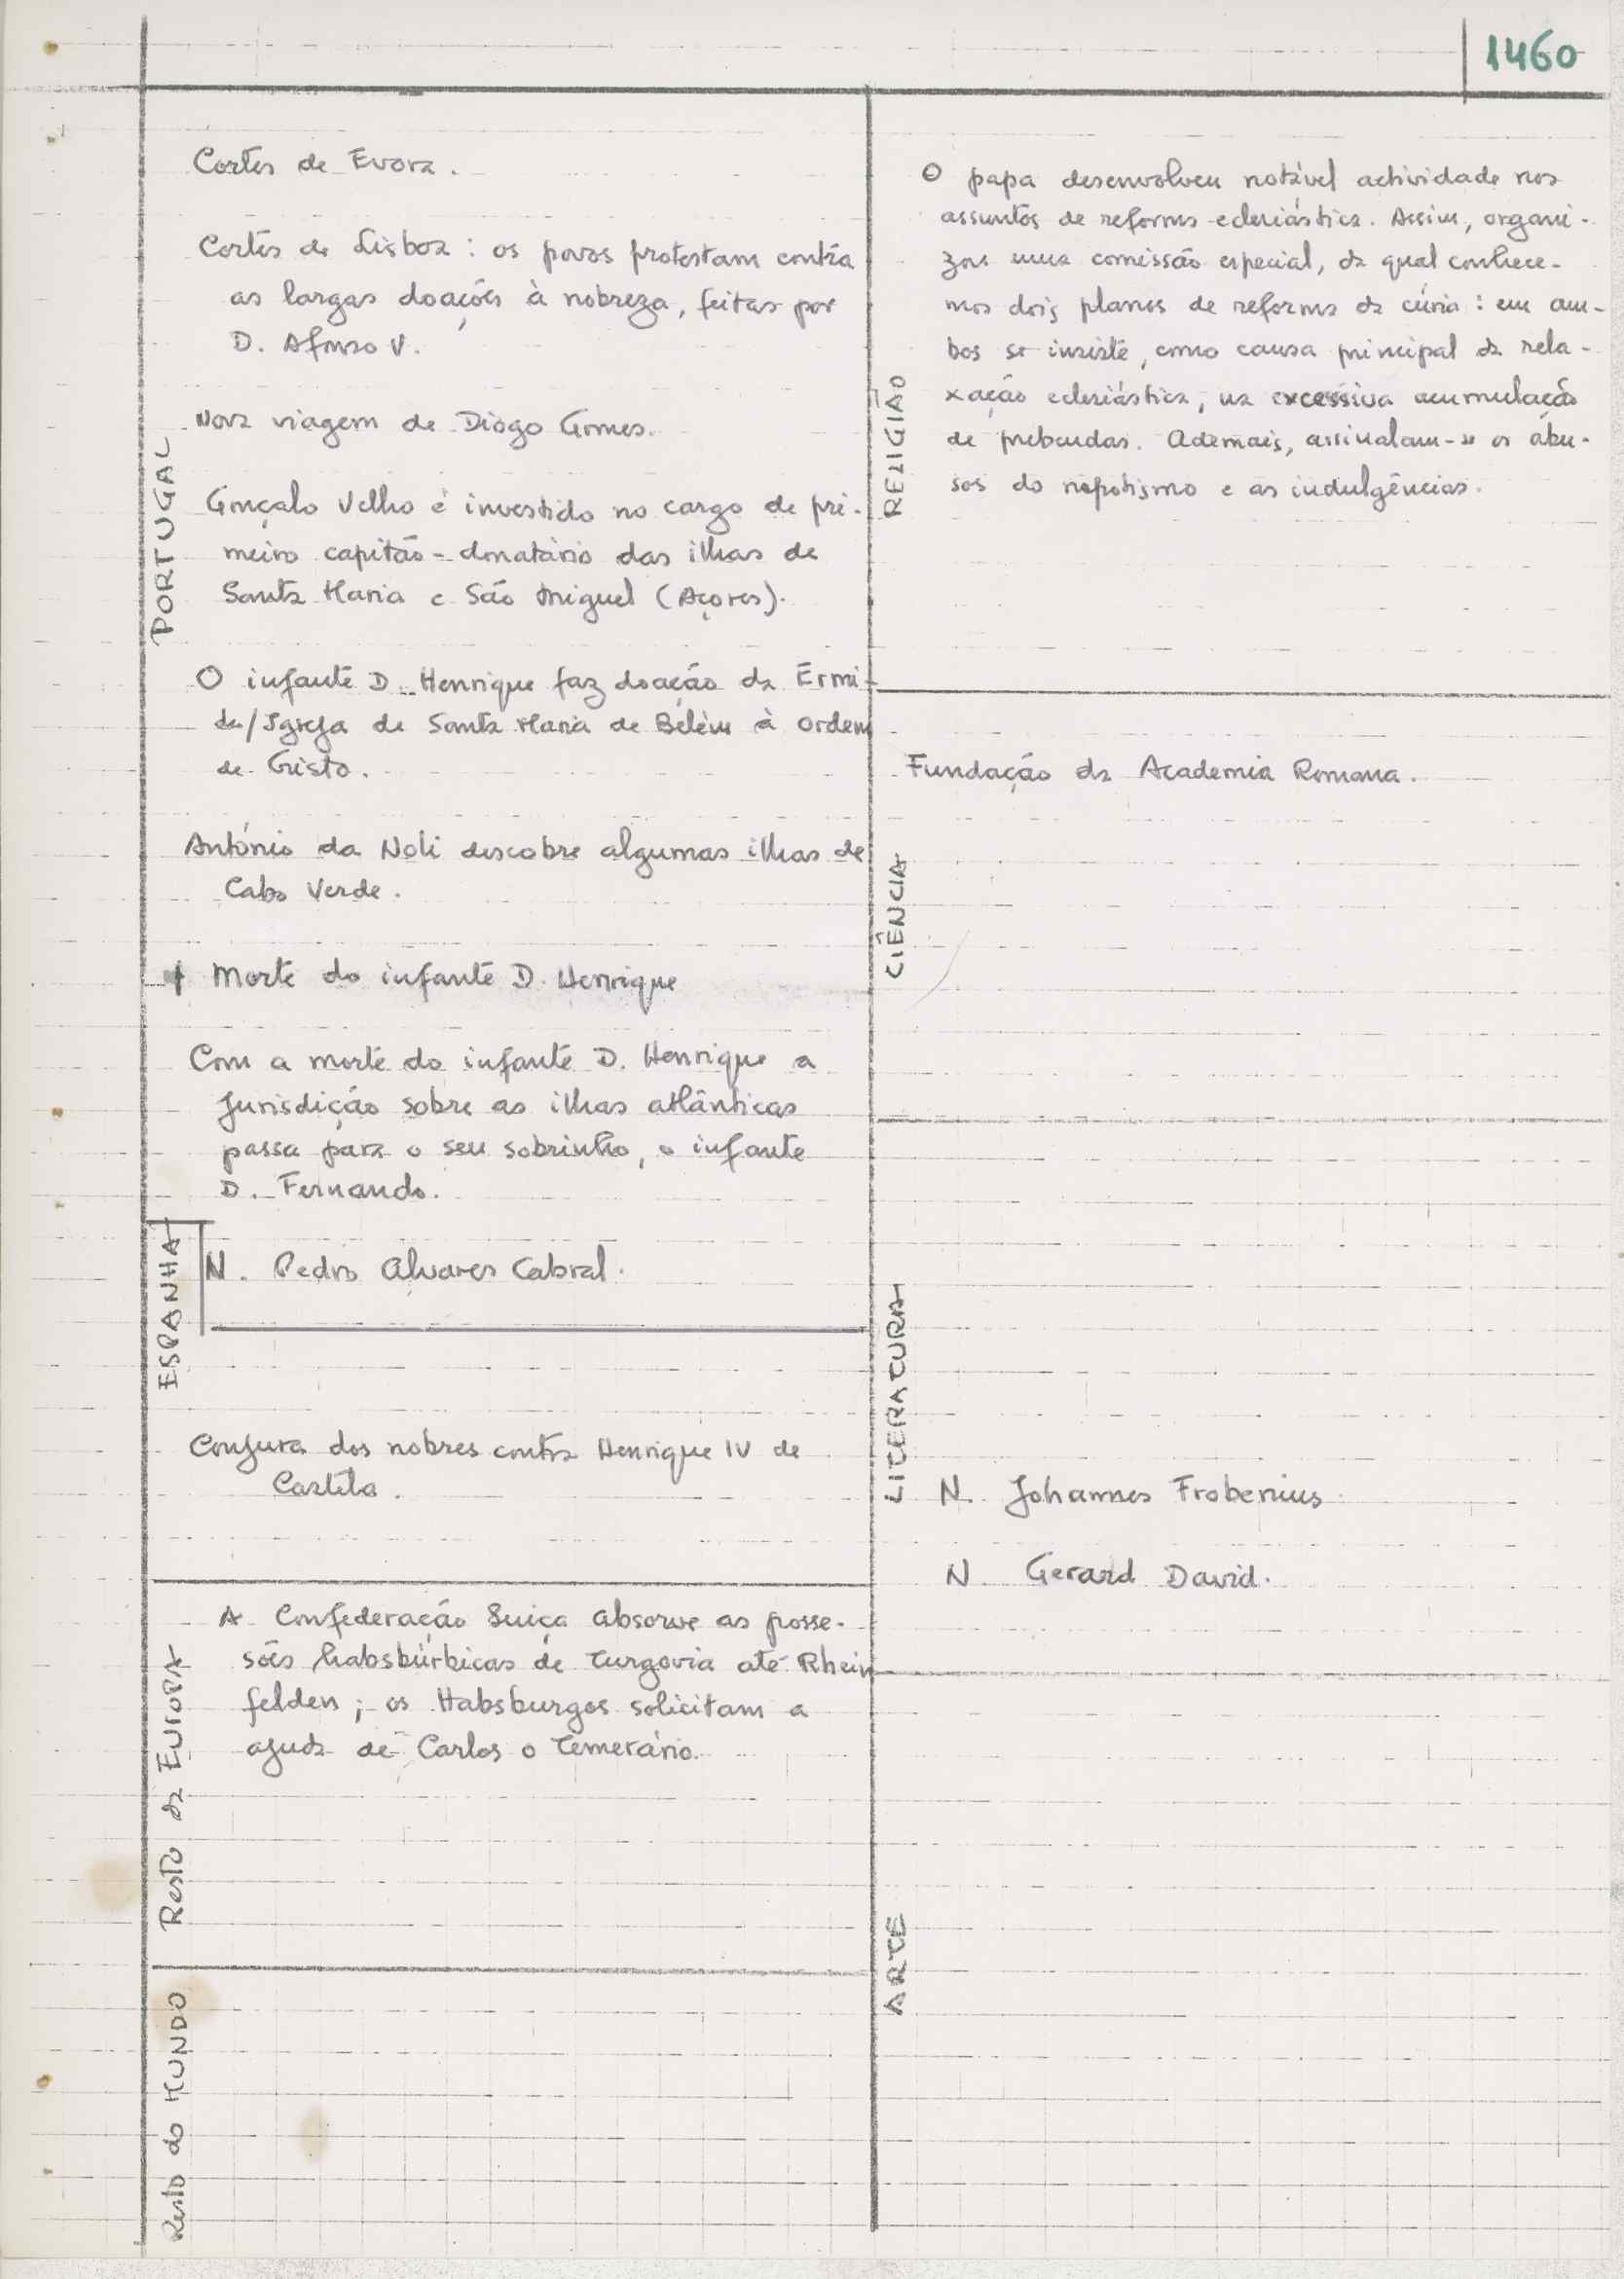 1460
PORTUGAL
Cortes de Evora.
Cortes de Lisboa : os povos protestam contra
as largas doações à nobreza, feitas por
D. Afonso V.
Nova viagem de Diogo Gomes.
Gonçalo Velho é investido no cargo de pri-
meiro capitão-donatário das ilhas de
Santa Maria e São Miguel (Açores).
O infante D. Henrique faz doação da Ermi-
da/Igreja de Santa Maria de Belém à Ordem
de Cristo.
António da Noli descobre algumas ilhas de
Cabo Verde.
† Morte do infante D. Henrique
Com a morte do infante D. Henrique a
jurisdição sobre as ilhas atlânticas
passa para o seu sobrinho, o infante
D. Fernando.
N. Pedro Alvares Cabral.
ESPANHA
Conjura dos nobres contra Henrique IV de
Castela.
Resto da Europa
A Confederação Suiça absorve as posse-
sões habsbúrbicas de Turgovia até Rhein
felden; os Habsburgos solicitam a
ajuda de Carlos o Temerário.
Resto do MUNDO
RELIGIÃO
O papa desenvolveu notável actividade nos
assuntos de reforma eclesiástica. Assim, organi-
zou uma comissão especial, da qual conhece-
mos dois planos de reforma da cúria : em am-
bos se insiste, como causa principal da rela-
xação eclesiástica, na excessiva acumulação
de prebendas. Ademais, assinalam-se os abu-
sos do nepotismo e as indulgências.
CIÊNCIA
Fundação da Academia Romana.
LITERATURA
N. Johannes Frobenius
N Gerard David.
ARTE